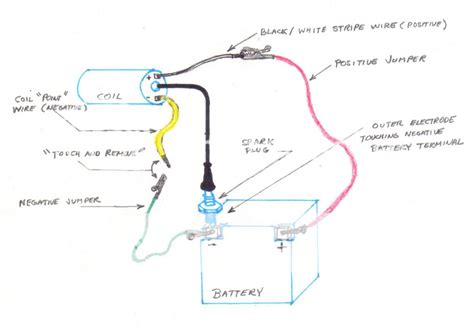 BLACK/WHITE STRIPE WIRE (POSITIVE)
POSITIVE JUMPER
COIL
+
-
COIL "POINT"
WIRE (NEGATIVE)
SPARK
PLUG
OUTER ELECTRODE
TOUCHING NEGATIVE
BATTERY TERMINAL
"TOUCH AND REMOVE"
NEGATIVE JUMPER
-
+
BATTERY